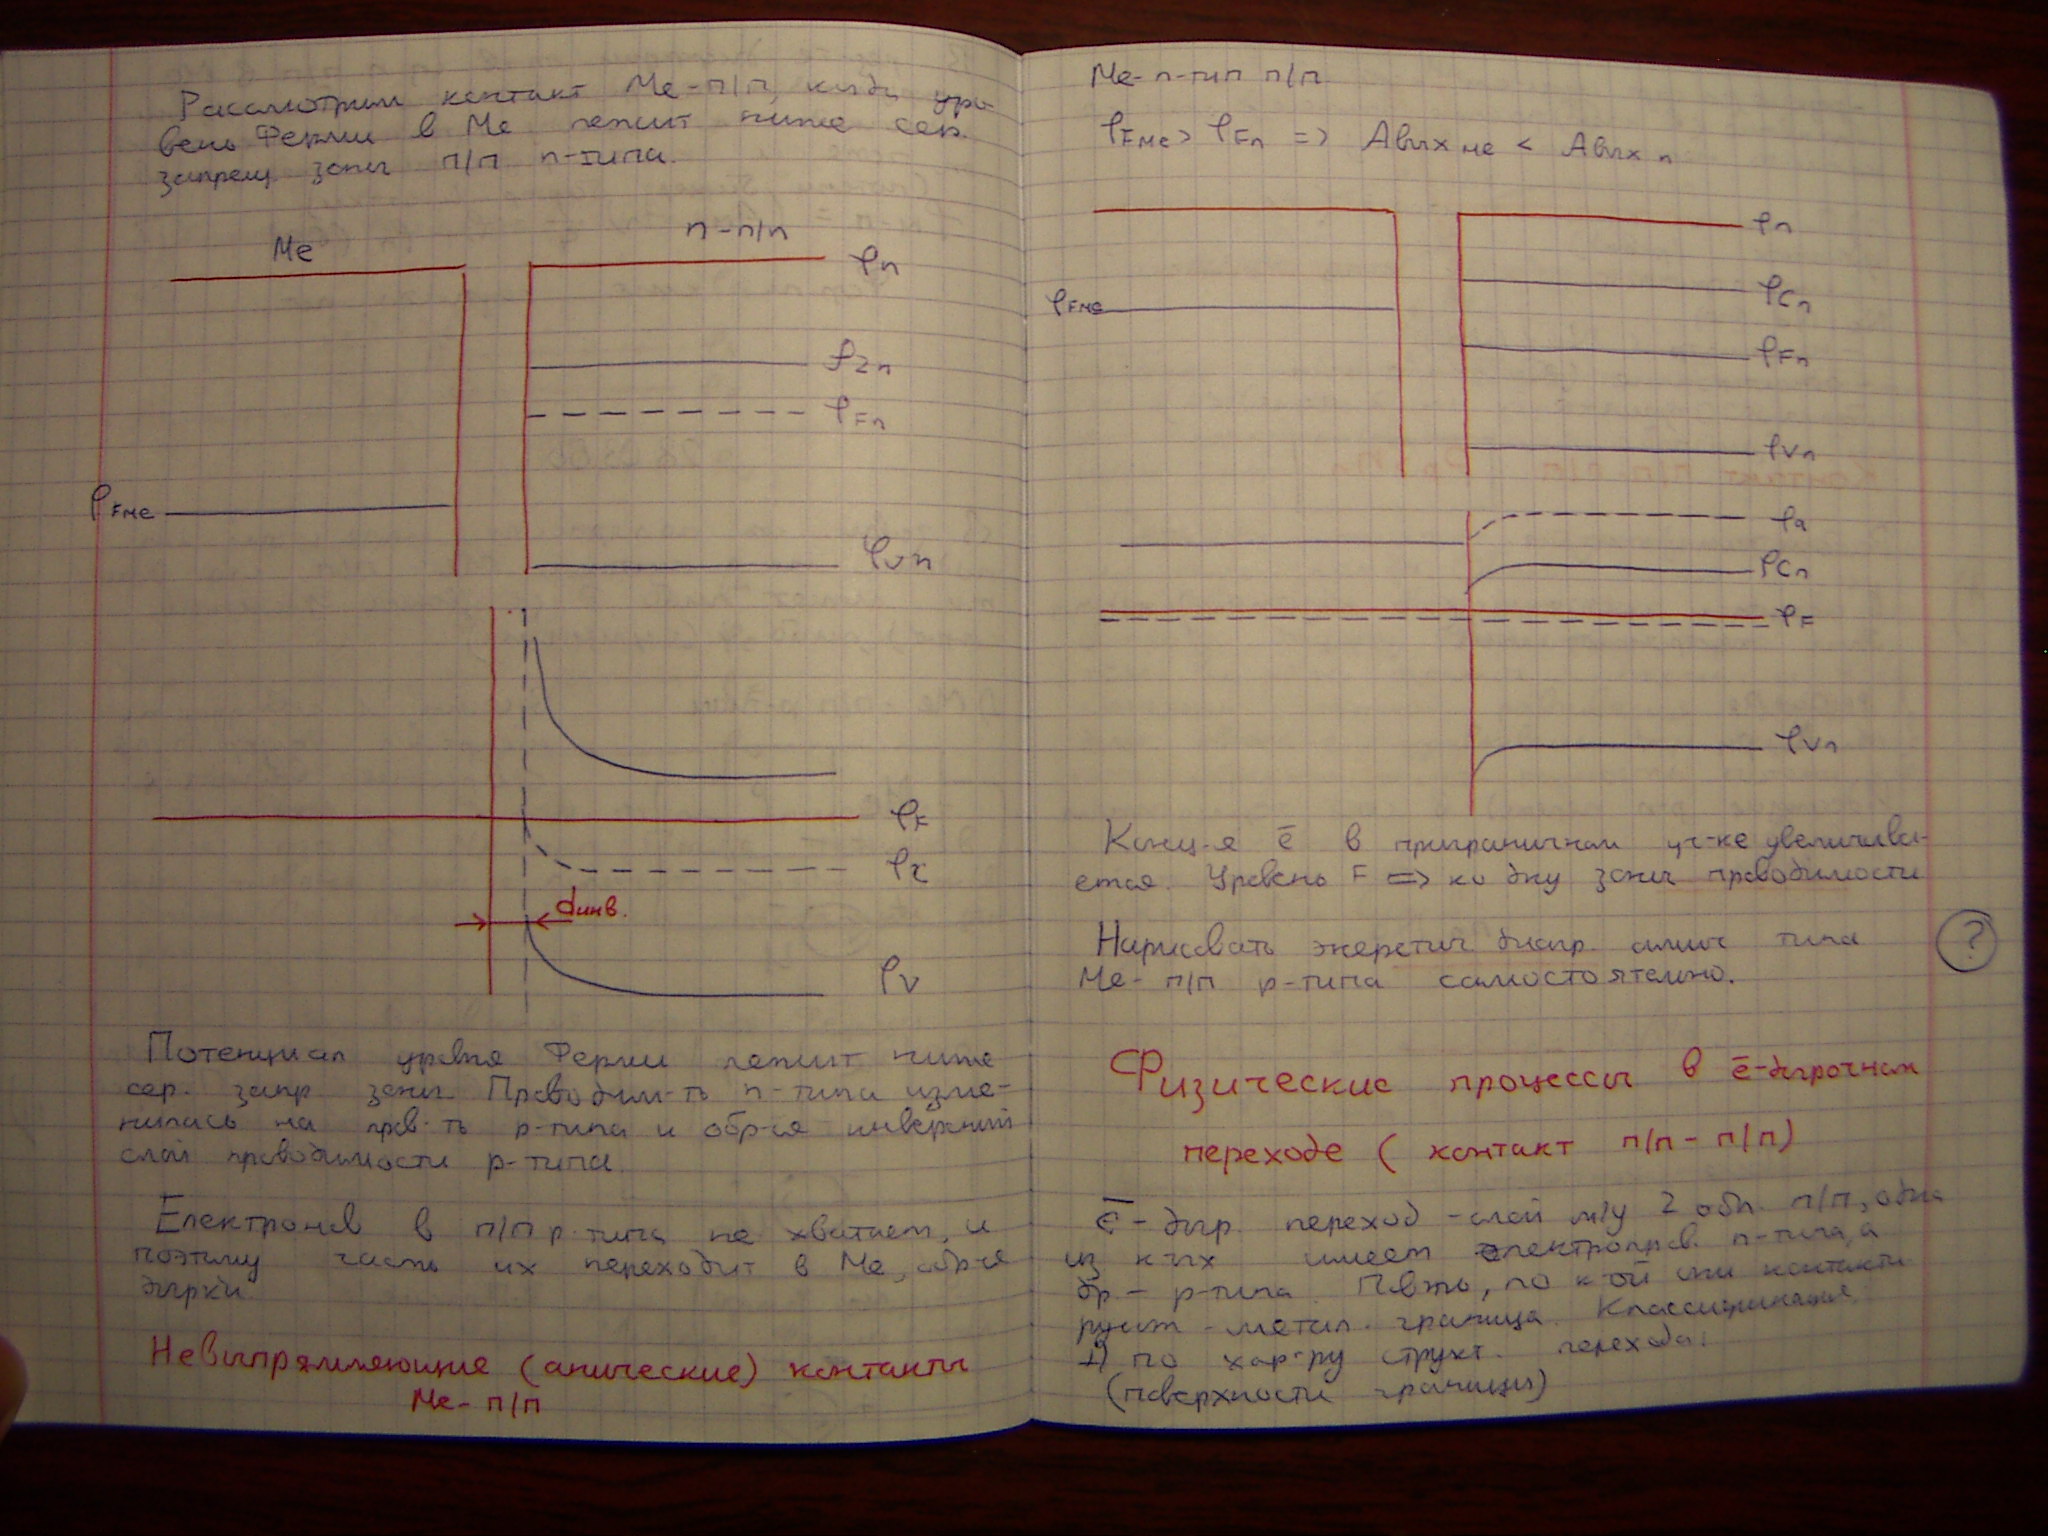 Рассмотрим контакт Ме-п/п, когда уро-
вень Ферми в Ме лежит ниже сер.
запрещ зоны п/п n-типа.
Ме
n-п/п
φn
φ2n
φFn
φFме
φvn
φF
φi
dинв.
φv
Потенциал уровня Ферми лежит ниже
сер. запр зоны. Проводим-ть n-типа изме-
нилась на пров-ть p-типа и обр-ся инверсный
слой проводимости p-типа.
Електронов в п/п p-типа не хватает, и
поэтому часть их переходит в Ме, обр-я
дырки.
Невыпрямляющие (омические) контакты
Ме- п/п
Ме- n-тип п/п
φFме > φFn => Авых ме < Авых n
φn
φFме
φCn
φFn
φVn
φa
φCn
φF
φVn
Конц-я ē в приграничном уч-ке увеличива-
ется. Уровень F => ко дну зоны проводимости
Нарисовать энергетич диагр. омич типа
Ме- п/п p-типа самостоятельно.
?
Физические процессы в ē-дырочном
переходе ( контакт п/п - п/п)
ē - дыр. переход - слой м/у 2 обл. п/п, одна
из к-ых имеет электропров. n-типа, а
др - p-типа. Пов-ть, по к-ой они контакти
руют - метал. граница. Классификация
1) по хар-ру структ. перехода:
(поверхности границы)